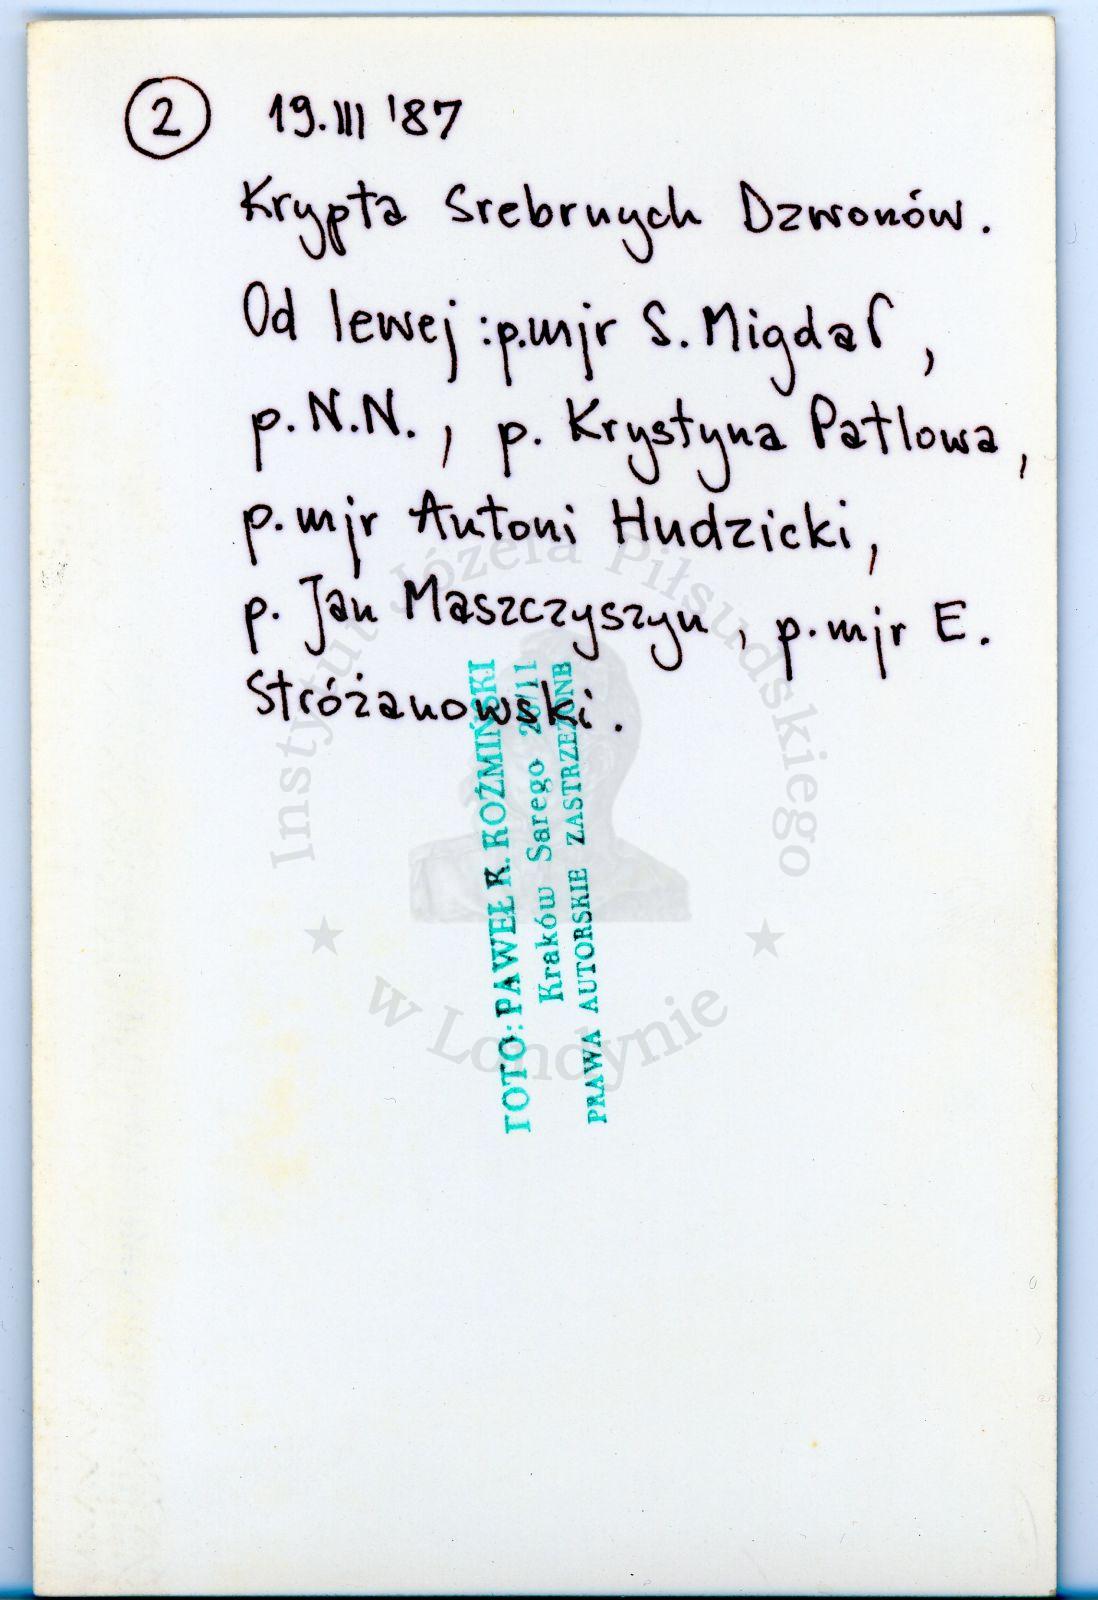 2 19.III '87
Krypta Srebrnych Dzwonów.
Od lewej: p.mjr S. Migdał,
p. N.N., p. Krystyna Patlowa,
p.mjr Antoni Hudzicki,
p. Jan Maszczyszyn, p.mjr E.
Stróżanowski.
FOTO: PAWEŁ K. KOŹMIŃSKI
Kraków Sarego 26/11
PRAWA AUTORSKIE ZASTRZEŻONE
Instytut Józefa Piłsudskiego
w Londynie